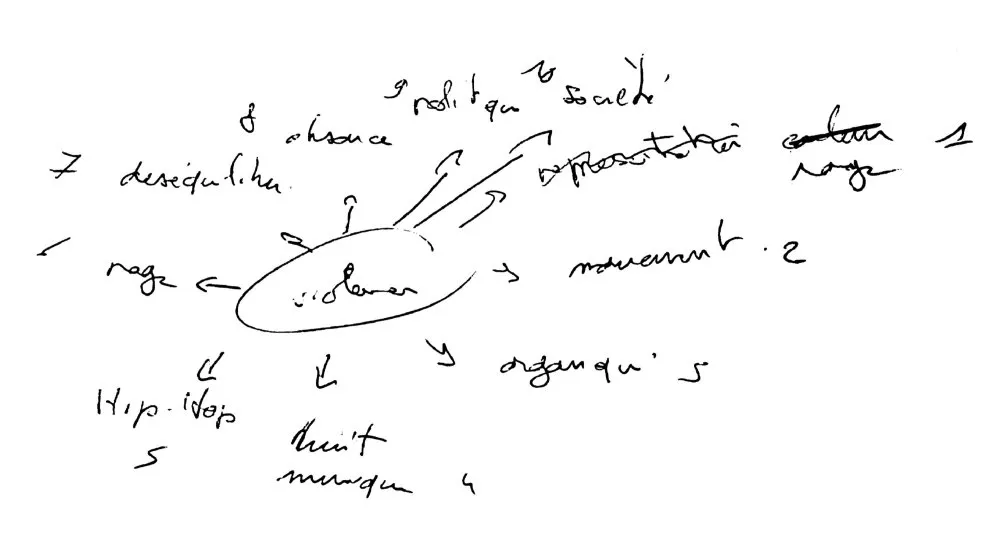 9 politique 10 société
8 absence
7 deséquilibre
rage 1
rage
violence
mouvement . 2
organique 5
Hip-Hop
5
bruit
musique 4